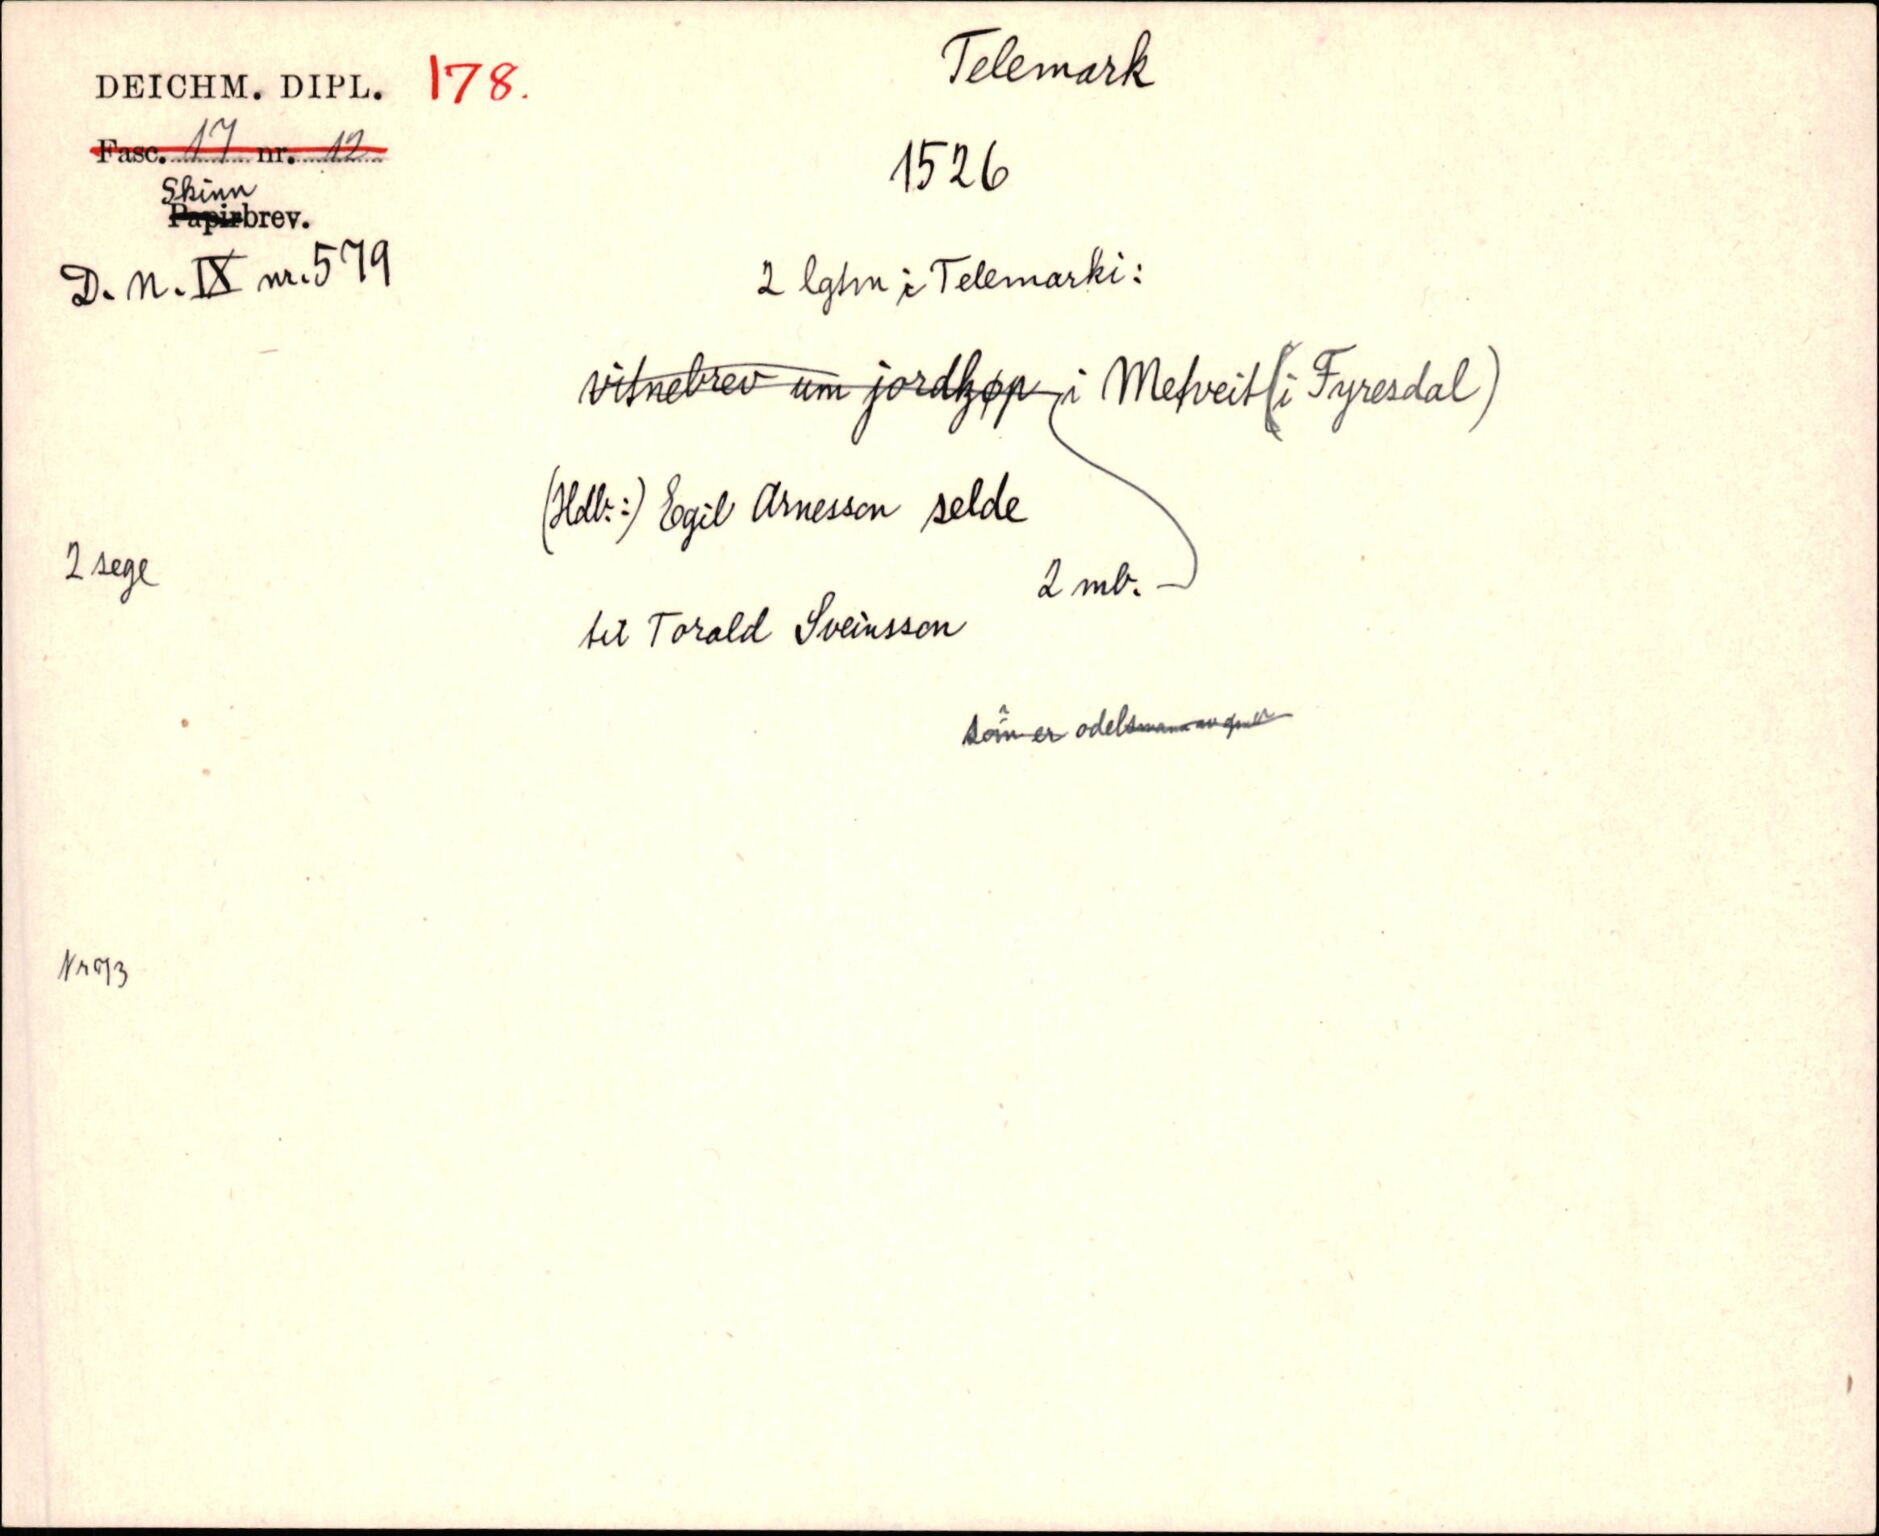 DEICHM. DIPL. 178.
Telemark
Fasc. 17 nr. 12
1526
Skinn
Papirbrev.
D. N. IX nr. 579
2 lgtm i Telemarki:
vitnebrev um jordkjøp i Metveit (i Fyresdal)
(Hdl.:) Egil Arnesson selde
2 sege
2 mb.
til Torald Sveinsson
som er odelsmann av